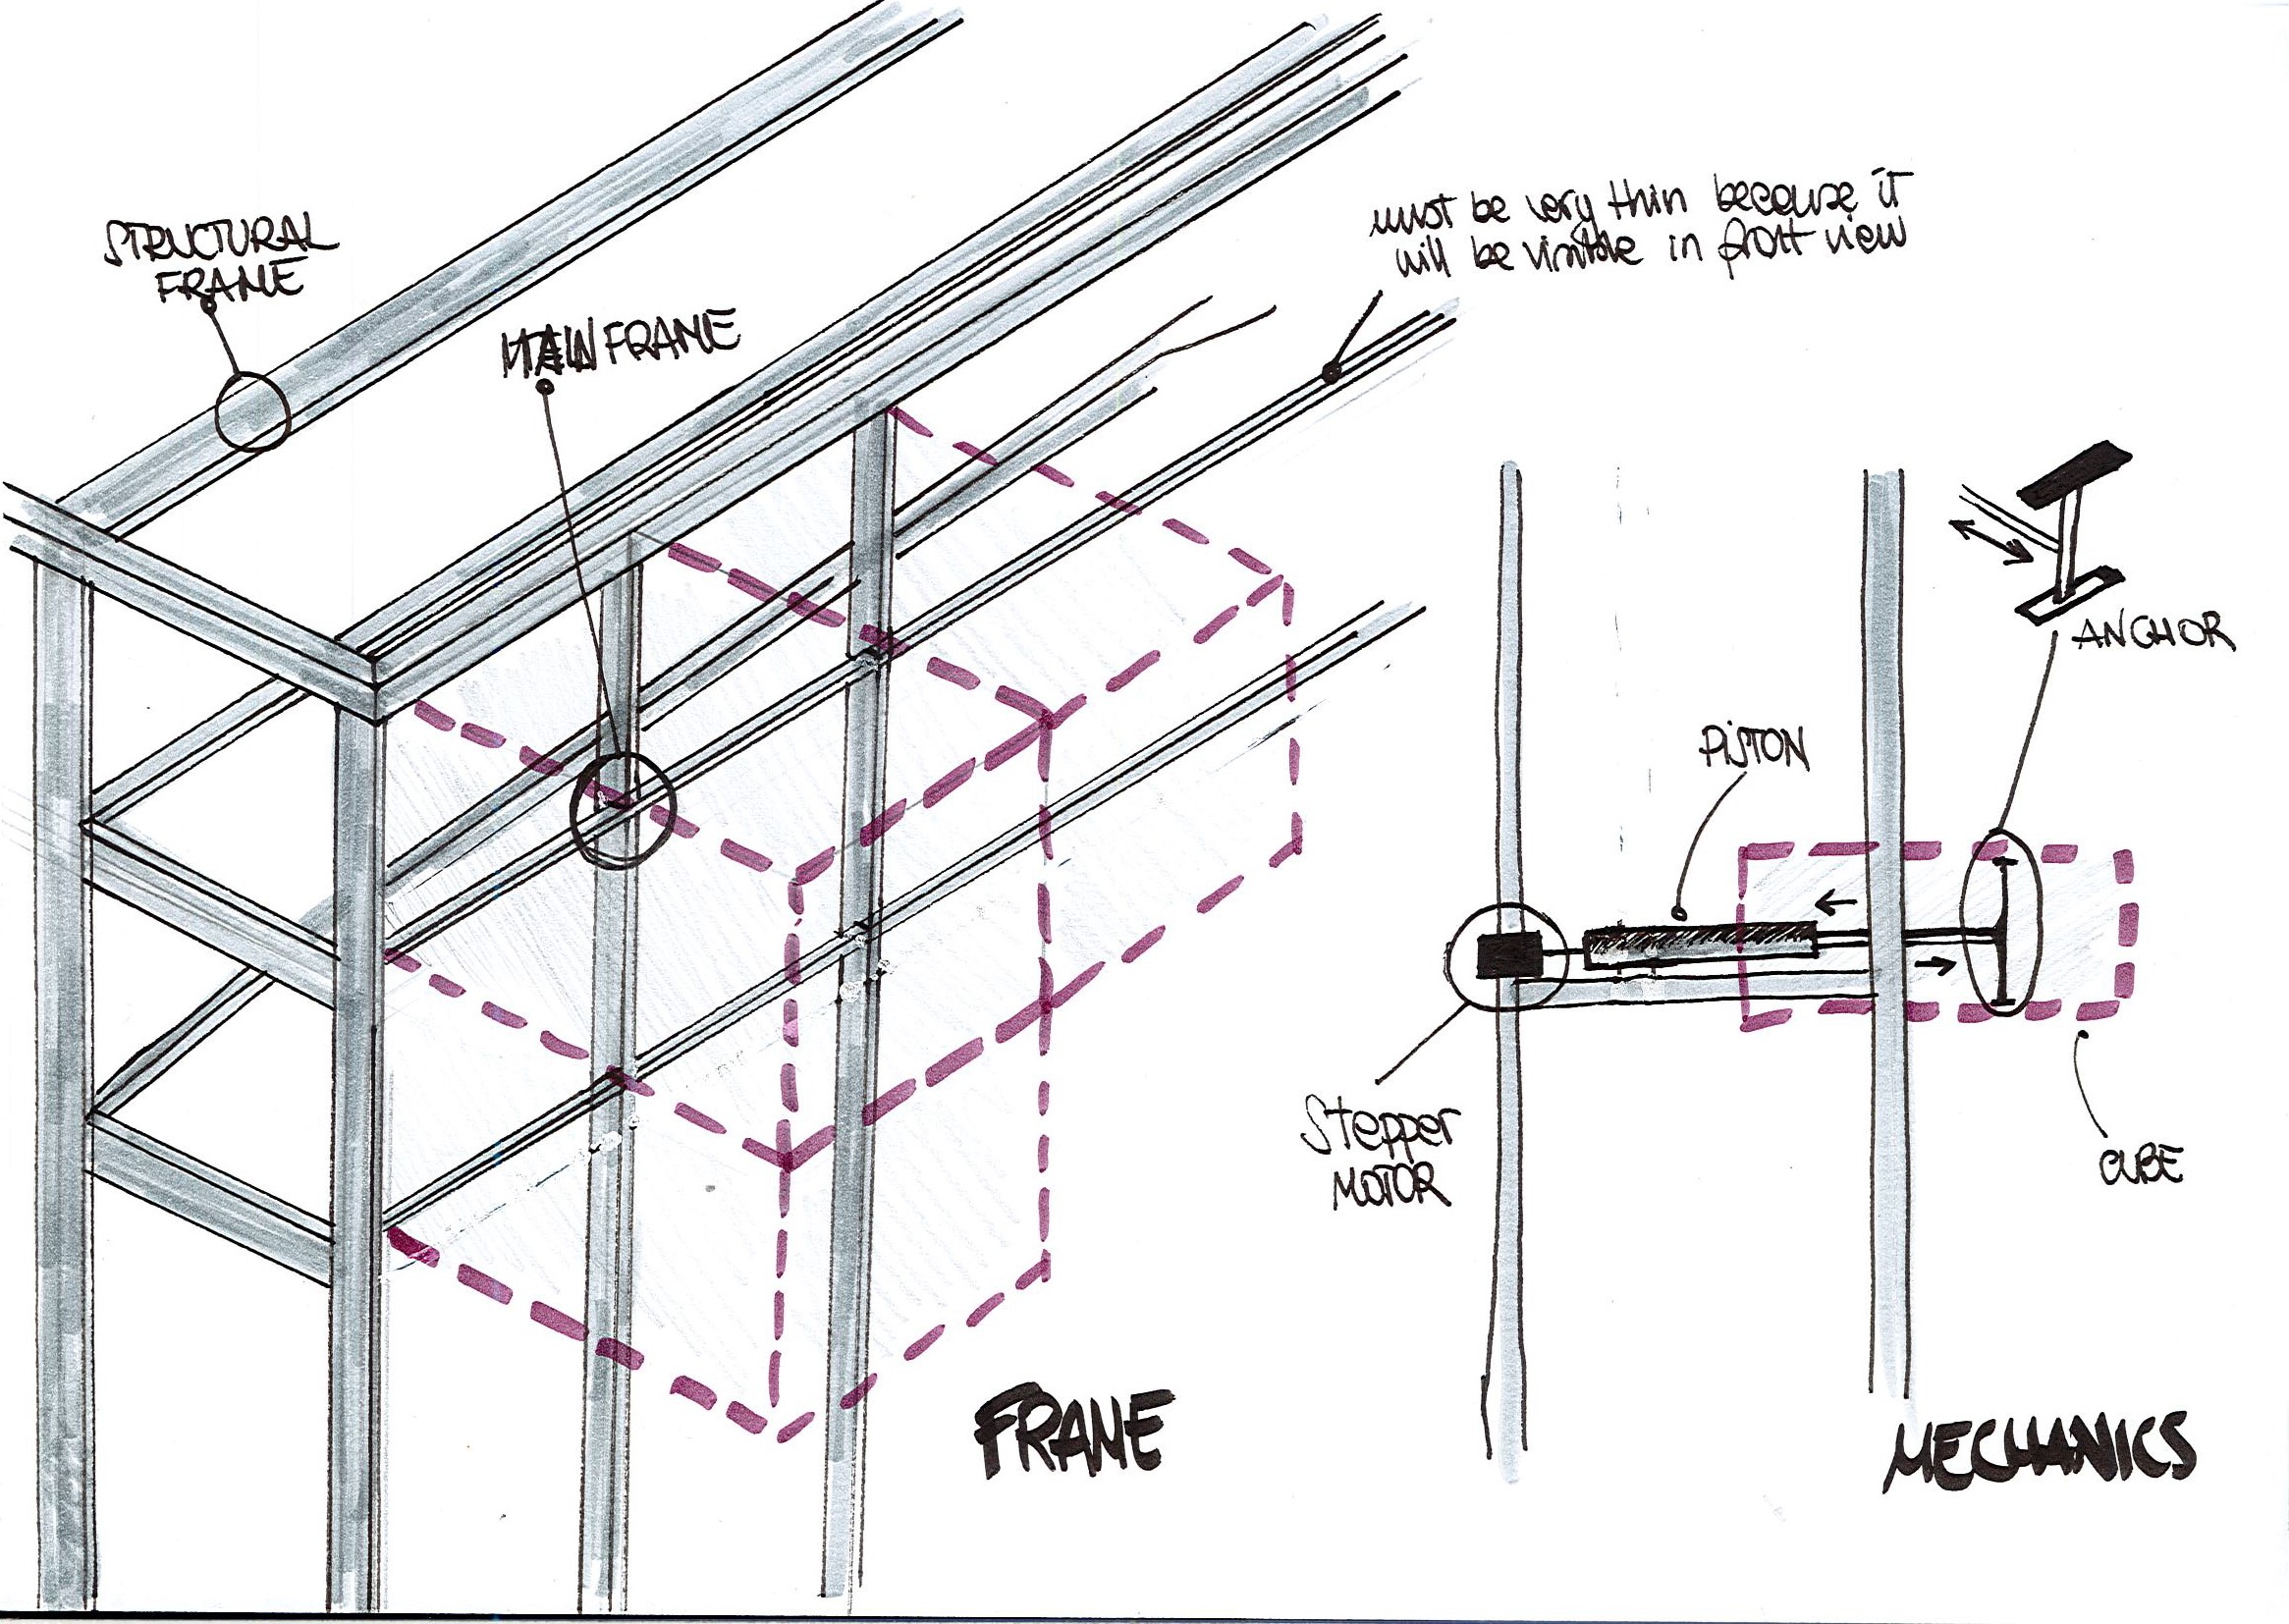 STRUCTURAL
FRAME
MAIN FRAME
must be very thin because it
will be visible in front view
ANCHOR
PISTON
Stepper
MOTOR
CUBE
FRAME
MECHANICS